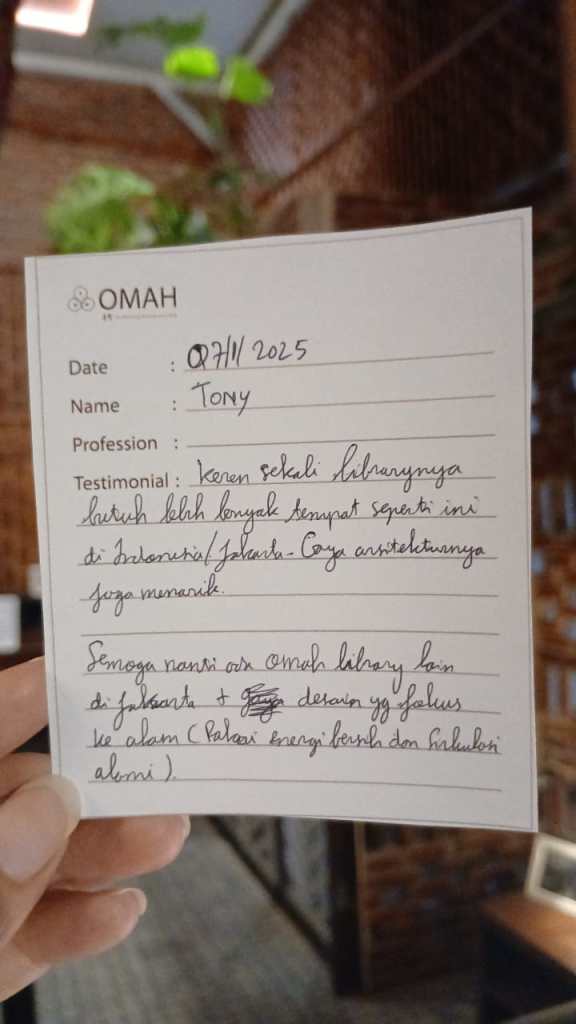 OMAH
Date : 07/1/2025
Name : TONY
Profession :
Testimonial : Keren sekali librarynya
butuh lebih banyak tempat seperti ini
di Indonesia/Jakarta. Gaya arsitekturnya
juga menarik.
Semoga nanti ada omah library lain
di Jakarta + desain yg fokus
ke alam (Pakai energi bersih dan sirkulasi
alami).